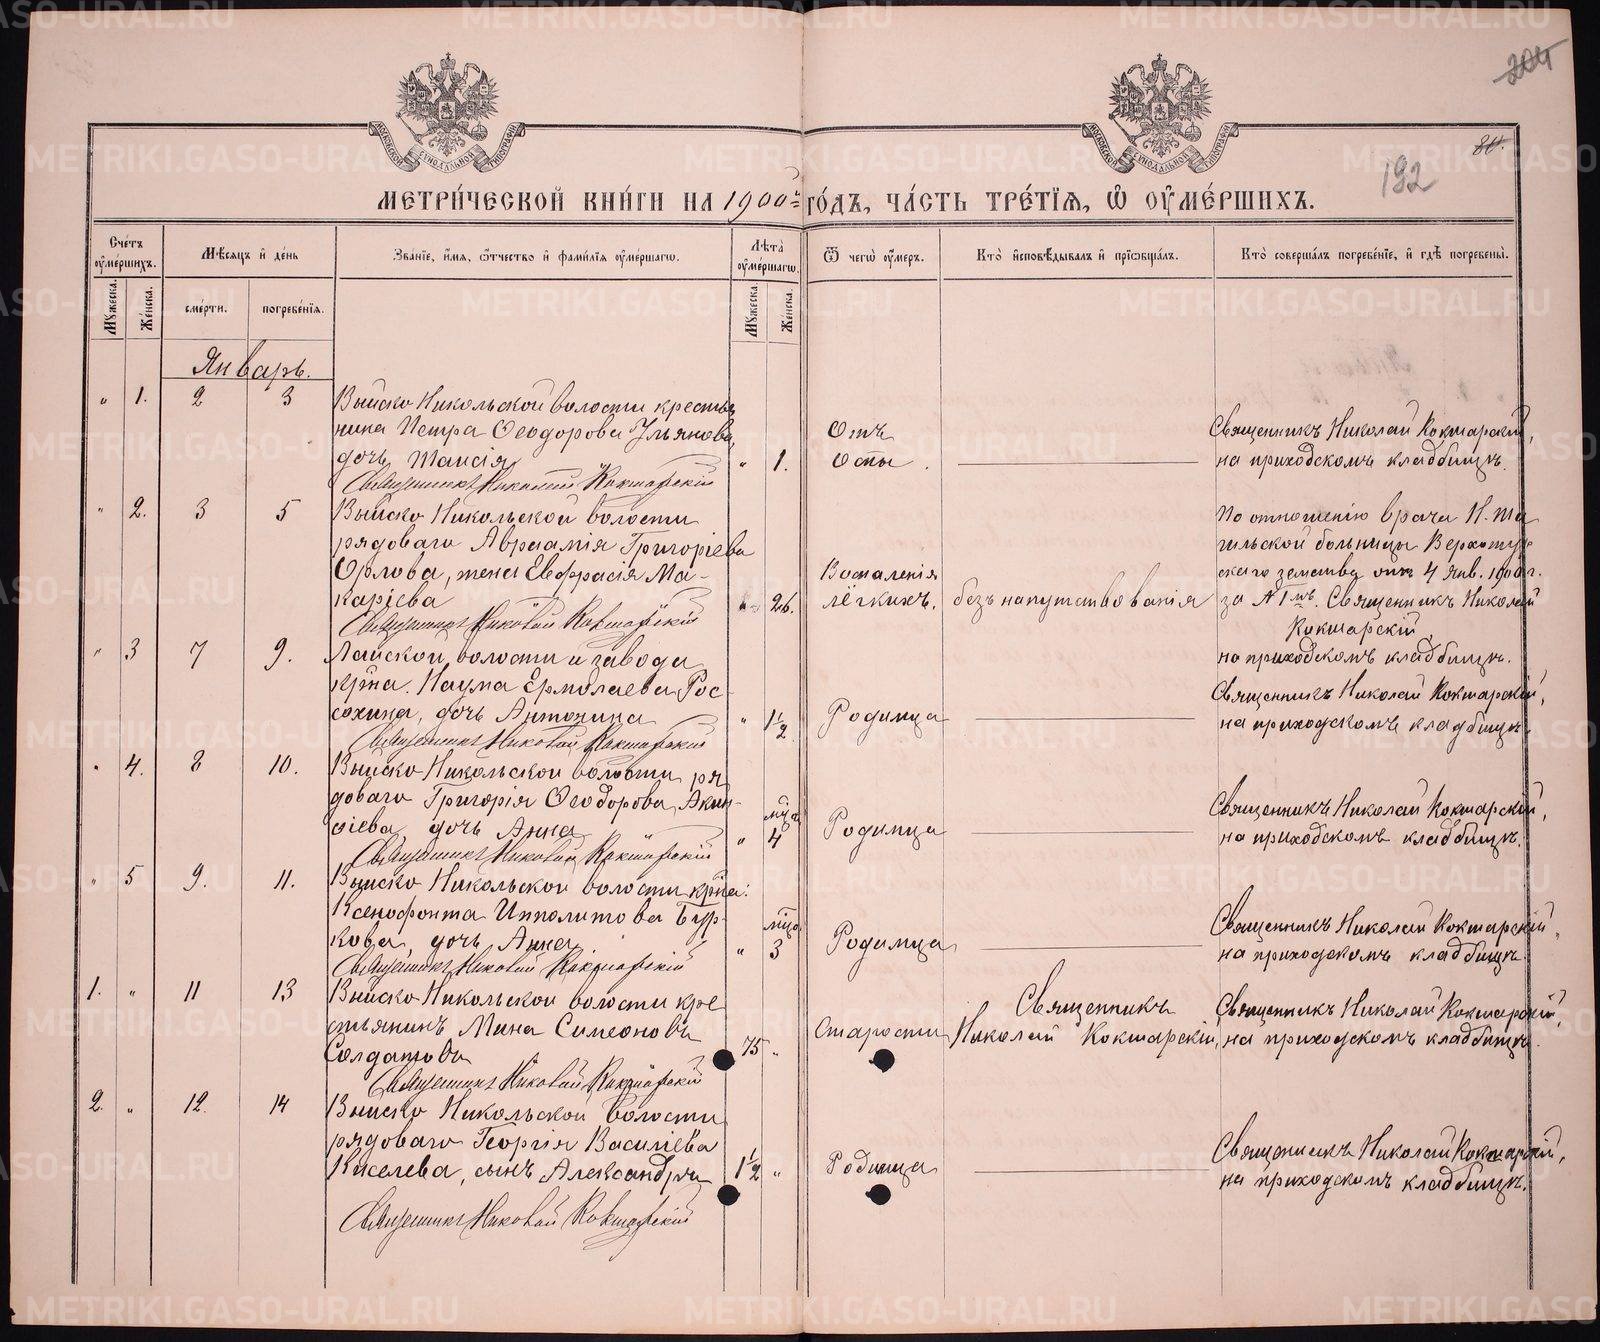 204
84.
192
МЕТРИЧЕСКОЙ КНИГИ НА 1900й ГОДЪ, ЧАСТЬ ТРЕТІЯ, Ѿ ОУМЕРШИХЪ.
Счетъ оумершихъ.
Мѣсяцъ и день
Званіе, имя, ѿтчество и фамилія оумершагѡ.
Лѣта оумершагѡ.
Ѿ чегѡ оумеръ.
Кто исповѣдывалъ и пріѡбщалъ.
Кто совершалъ погребеніе, и гдѣ погребены.
Мужеска.
Женска.
смерти.
погребенія.
Мужеска.
Женска.
Январь.
„ 1. 2 3 Выйско Никольской волости крестья
нина Петра Ѳеодорова Ульянова
дочь Таисія „ 1.
Отъ
Оспы.
Священникъ Николай Кокшарскій,
на приходскомъ кладбищѣ.
Священникъ Николай Кокшарскій
„ 2. 3 5 Выйско Никольской волости
рядоваго Авраамія Григоріева
Орлова, жена Евфрасія Ма-
каріева 26.
Воспаленія
лёгкихъ.
безъ напутствованія
По отношенію врача Н. Та
гильской больницы Верхотур
скаго земства отъ 4 Янв. 1900 г.
за № 1мъ. Священникъ Николай
Кокшарскій,
на приходскомъ кладбищѣ.
Священникъ Николай Кокшарскій
„ 3 7 9. Лайской волости и завода
кр–на Наума Ермолаева Рос-
сохина, дочь Антонина „ 1 1/2
Родимца
Священникъ Николай Кокшарскій,
на приходскомъ кладбищѣ.
Священникъ Николай Кокшарскій
„ 4. 8 10. Выйско Никольской волости ря
доваго Григорія Ѳеодорова Акин-
фіева, дочь Анна „ мца 4
Родимца
Священникъ Николай Кокшарскій,
на приходскомъ кладбищѣ.
Священникъ Николай Кокшарскій
„ 5 9. 11. Выйско Никольской волости кр–на
Ксенофонта Ипполитова Бур-
кова, дочь Анна. „ мца 3
Родимца
Священникъ Николай Кокшарскій,
на приходскомъ кладбищѣ.
Священникъ Николай Кокшарскій
1. „ 11 13 Выйско Никольской волости кре
стьянинъ Мина Симеоновъ
Солдатовъ 75 „
Старости
Священникъ
Николай Кокшарскій,
Священникъ Николай Кокшарскій,
на приходскомъ кладбищѣ.
Священникъ Николай Кокшарскій
2. „ 12 14 Выйско Никольской волости
рядоваго Георгія Василіева
Киселева, сынъ Александръ 1 1/2 „
Родимца
Священникъ Николай Кокшарскій,
на приходскомъ кладбищѣ.
Священникъ Николай Кокшарскій
METRIKI.GASO-URAL.RU